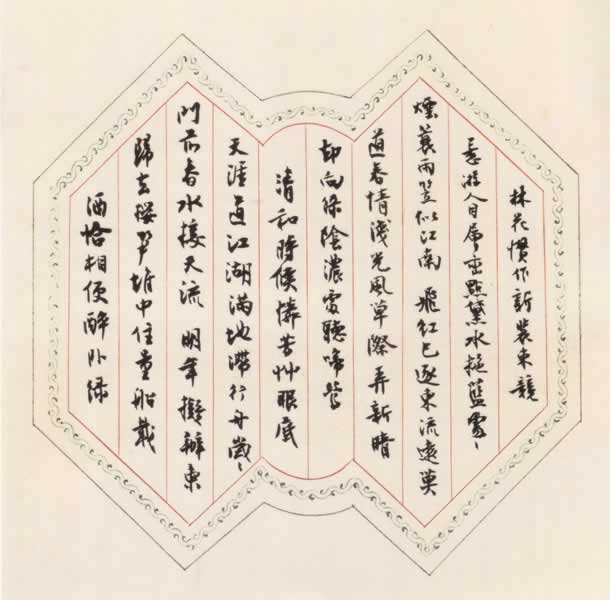 林花慣作新裝束競
惹游人目層峦點黛水拖藍處〻
煙蓑雨笠似江南 飛紅已逐東流遠莫
道春情淺光風草際弄新晴
却向綠陰濃處聽啼鶯
清和時候憐芳艸眼底
天涯道江湖滿地滯行舟歲〻
門前春水接天流 明年擬辦東
歸去櫻笋堆中住畫船載
酒恰相便醉卧綠